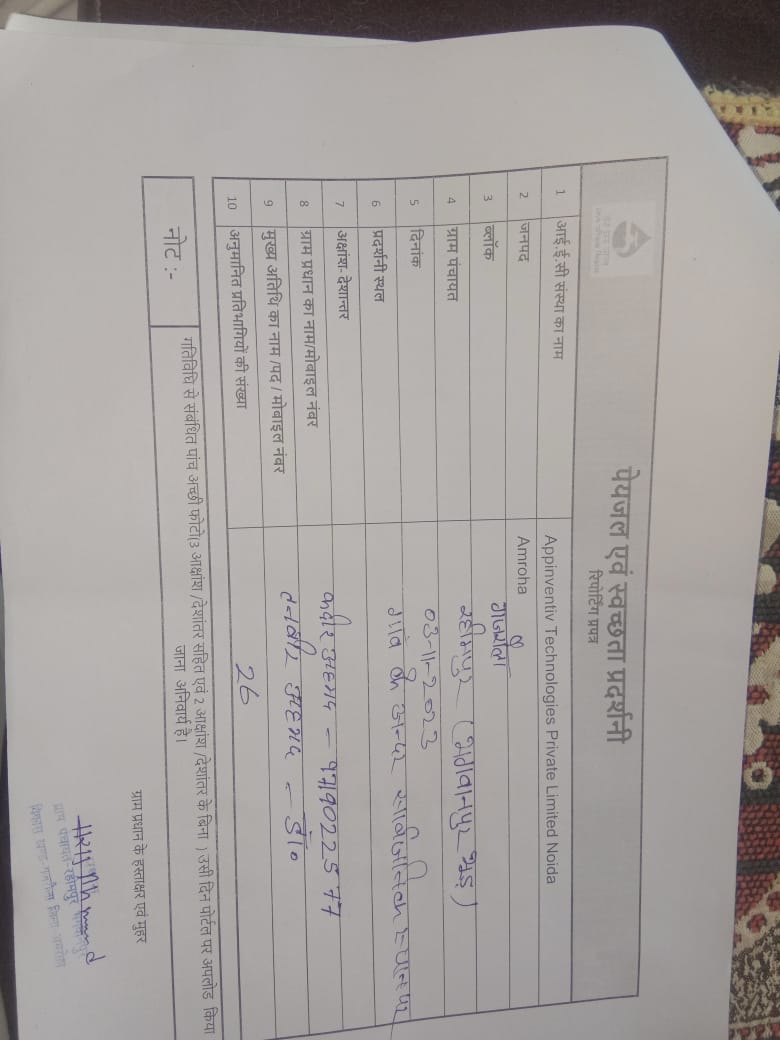 पेयजल एवं स्वच्छता प्रदर्शनी
रिपोर्टिंग प्रपत्र
1 आई.ई.सी संस्था का नाम Appinventiv Technologies Private Limited Noida
2 जनपद Amroha
3 ब्लॉक गजरौला
4 ग्राम पंचायत रहीमपुर (भगवानपुर भूड़)
5 दिनांक 03-11-2023
6 प्रदर्शनी स्थल गांव के अन्दर सार्वजनिक स्थान पर
7 अक्षांश-देशान्तर
8 ग्राम प्रधान का नाम/मोबाइल नंबर अहमद -
9 मुख्य अतिथि का नाम /पद / मोबाइल नंबर तनवीर अहमद - डॉ०
10 अनुमानित प्रतिभागियों की संख्या 26
नोट :- गतिविधि से संबंधित पांच अच्छी फोटो(3 आक्षांश /देशांतर सहित एवं 2 आक्षांश /देशांतर के बिना ) उसी दिन पोर्टल पर अपलोड किया
जाना अनिवार्य है।
ग्राम प्रधान के हस्ताक्षर एवं मुहर
ग्राम पंचायत-रहीमपुर